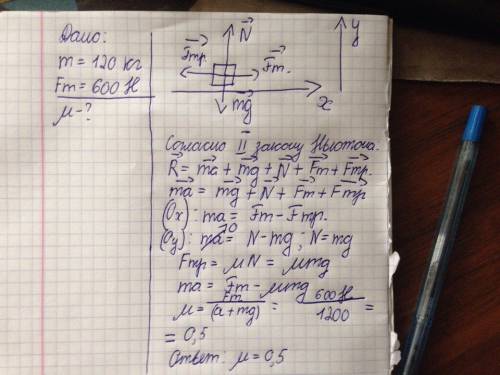 Дано:
m = 120 кг
Fт = 600 Н
μ - ?
N
y
Fтр.
Fт.
mg
x
Согласно II закону Ньютона:
R = ma + mg + N + Fт + Fтр.
ma = mg + N + Fт + Fтр
(Ox): ma = Fт - Fтр.
(Oy): ma = 0 N - mg ; N = mg
Fтр = μN = μmg
ma = Fт - μmg
μ = Fт / (a + mg) = 600 Н / 1200 =
= 0,5
Ответ: μ = 0,5